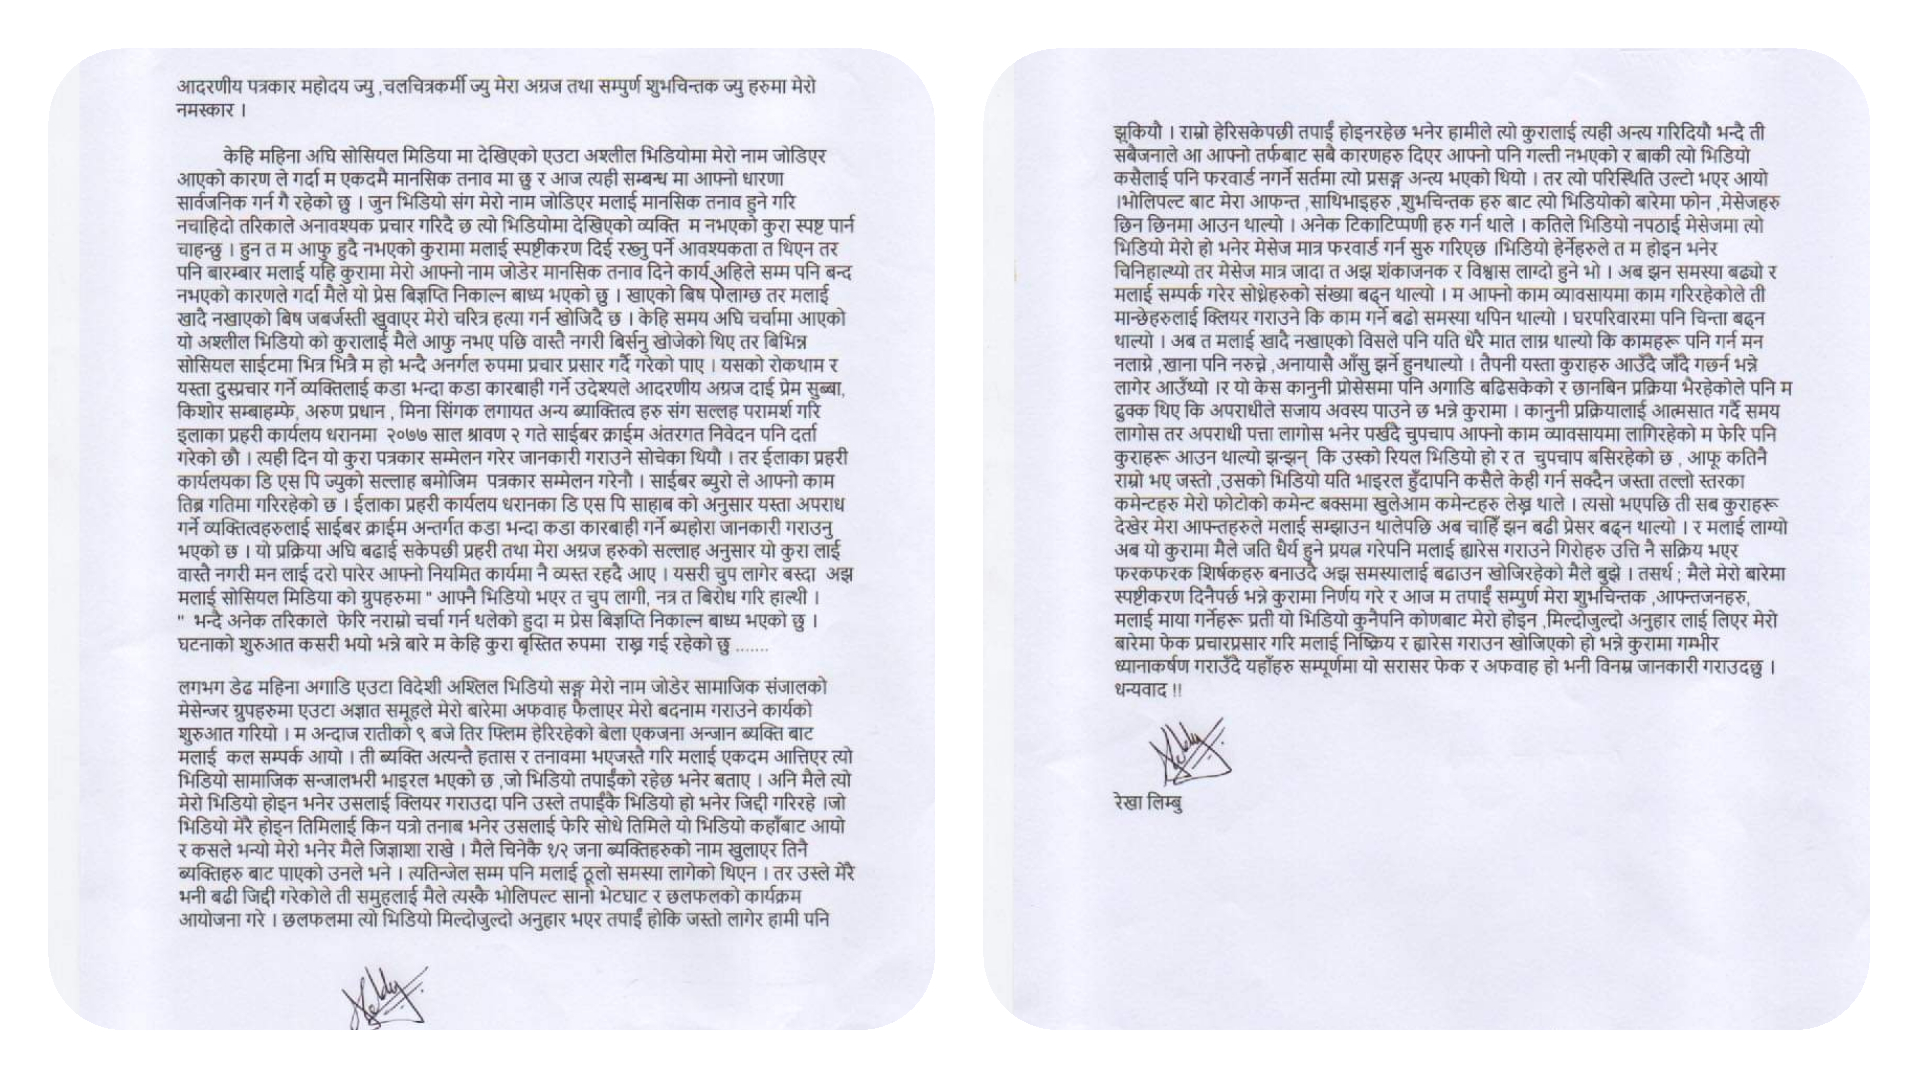 आदरणीय पत्रकार महोदय ज्यु ,चलचित्रकर्मी ज्यु मेरा अग्रज तथा सम्पुर्ण शुभचिन्तक ज्यु हरुमा मेरो
नमस्कार ।
केहि महिना अघि सोसियल मिडिया मा देखिएको एउटा अश्लील भिडियोमा मेरो नाम जोडिएर
आएको कारण ले गर्दा म एकदमै मानसिक तनाव मा छु र आज त्यही सम्बन्ध मा आफ्नो धारणा
सार्वजनिक गर्न गै रहेको छु । जुन भिडियो संग मेरो नाम जोडिएर मलाई मानसिक तनाव हुने गरि
नचाहिदो तरिकाले अनावश्यक प्रचार गरिदै छ त्यो भिडियोमा देखिएको व्यक्ति म नभएको कुरा स्पष्ट पार्न
चाहन्छु । हुन त म आफु हुदै नभएको कुरामा मलाई स्पष्टीकरण दिई रख्नु पर्ने आवश्यकता त थिएन तर
पनि बारम्बार मलाई यहि कुरामा मेरो आफ्नो नाम जोडेर मानसिक तनाव दिने कार्य अहिले सम्म पनि बन्द
नभएको कारणले गर्दा मैले यो प्रेस बिज्ञप्ति निकाल्न बाध्य भएको छु । खाएको बिष पोलाग्छ तर मलाई
खादै नखाएको बिष जबर्जस्ती खुवाएर मेरो चरित्र हत्या गर्न खोजिदै छ । केहि समय अघि चर्चामा आएको
यो अश्लील भिडियो को कुरालाई मैले आफु नभए पछि वास्तै नगरी बिर्सनु खोजेको थिए तर बिभिन्न
सोसियल साईटमा भित्र भित्रै म हो भन्दै अनर्गल रुपमा प्रचार प्रसार गर्दै गरेको पाए । यसको रोकथाम र
यस्ता दुस्प्रचार गर्ने व्यक्तिलाई कडा भन्दा कडा कारबाही गर्ने उदेश्यले आदरणीय अग्रज दाई प्रेम सुब्बा,
किशोर सम्बाहम्फे, अरुण प्रधान , मिना सिंगक लगायत अन्य ब्याक्तित्व हरु संग सल्लह परामर्श गरि
इलाका प्रहरी कार्यलय धरानमा २०७७ साल श्रावण २ गते साईबर क्राईम अंतरगत निवेदन पनि दर्ता
गरेको छौ । त्यही दिन यो कुरा पत्रकार सम्मेलन गरेर जानकारी गराउने सोचेका थियौ । तर ईलाका प्रहरी
कार्यलयका डि एस पि ज्युको सल्लाह बमोजिम पत्रकार सम्मेलन गरेनौ । साईबर ब्युरो ले आफ्नो काम
तिब्र गतिमा गरिरहेको छ । ईलाका प्रहरी कार्यलय धरानका डि एस पि साहाब को अनुसार यस्ता अपराध
गर्ने व्यक्तित्वहरुलाई साईबर क्राईम अन्तर्गत कडा भन्दा कडा कारबाही गर्ने ब्यहोरा जानकारी गराउनु
भएको छ । यो प्रक्रिया अघि बढाई सकेपछी प्रहरी तथा मेरा अग्रज हरुको सल्लाह अनुसार यो कुरा लाई
वास्तै नगरी मन लाई दरो पारेर आफ्नो नियमित कार्यमा नै व्यस्त रहदै आए । यसरी चुप लागेर बस्दा अझ
मलाई सोसियल मिडिया को ग्रुपहरुमा " आफ्नै भिडियो भएर त चुप लागी, नत्र त बिरोध गरि हाल्थी ।
" भन्दै अनेक तरिकाले फेरि नराम्रो चर्चा गर्न थलेको हुदा म प्रेस बिज्ञप्ति निकाल्न बाध्य भएको छु ।
घटनाको शुरुआत कसरी भयो भन्ने बारे म केहि कुरा बृस्तित रुपमा राख्न गई रहेको छु .......
लगभग डेढ महिना अगाडि एउटा विदेशी अश्लिल भिडियो सङ्ग मेरो नाम जोडेर सामाजिक संजालको
मेसेन्जर ग्रुपहरुमा एउटा अज्ञात समूहले मेरो बारेमा अफवाह फैलाएर मेरो बदनाम गराउने कार्यको
शुरुआत गरियो । म अन्दाज रातीको ९ बजे तिर फ्लिम हेरिरहेको बेला एकजना अन्जान ब्यक्ति बाट
मलाई कल सम्पर्क आयो । ती ब्यक्ति अत्यन्तै हतास र तनावमा भएजस्तै गरि मलाई एकदम आत्तिएर त्यो
भिडियो सामाजिक सन्जालभरी भाइरल भएको छ ,जो भिडियो तपाईंको रहेछ भनेर बताए । अनि मैले त्यो
मेरो भिडियो होइन भनेर उसलाई क्लियर गराउदा पनि उस्ले तपाईंकै भिडियो हो भनेर जिद्दी गरिरहे ।जो
भिडियो मेरै होइन तिमिलाई किन यत्रो तनाब भनेर उसलाई फेरि सोधे तिमिले यो भिडियो कहाँबाट आयो
र कसले भन्यो मेरो भनेर मैले जिज्ञाशा राखे । मैले चिनेकै १/२ जना ब्यक्तिहरुको नाम खुलाएर तिनै
ब्यक्तिहरु बाट पाएको उनले भने । त्यतिन्जेल सम्म पनि मलाई ठूलो समस्या लागेको थिएन । तर उस्ले मेरै
भनी बढी जिद्दी गरेकोले ती समुहलाई मैले त्यस्कै भोलिपल्ट सानो भेटघाट र छलफलको कार्यक्रम
आयोजना गरे । छलफलमा त्यो भिडियो मिल्दोजुल्दो अनुहार भएर तपाईं होकि जस्तो लागेर हामी पनि
झूकियौ । राम्रो हेरिसकेपछी तपाईं होइनरहेछ भनेर हामीले त्यो कुरालाई त्यही अन्त्य गरिदियौ भन्दै ती
सबैजनाले आ आफ्नो तर्फबाट सबै कारणहरु दिएर आफ्नो पनि गल्ती नभएको र बाकी त्यो भिडियो
कसैलाई पनि फरवार्ड नगर्ने सर्तमा त्यो प्रसङ्ग अन्त्य भएको थियो । तर त्यो परिस्थिति उल्टो भएर आयो
।भोलिपल्ट बाट मेरा आफन्त ,साथिभाइहरु ,शुभचिन्तक हरु बाट त्यो भिडियोको बारेमा फोन ,मेसेजहरु
छिन छिनमा आउन थाल्यो । अनेक टिकाटिप्पणी हरु गर्न थाले । कतिले भिडियो नपठाई मेसेजमा त्यो
भिडियो मेरो हो भनेर मेसेज मात्र फरवार्ड गर्न सुरु गरिएछ ।भिडियो हेर्नेहरुले त म होइन भनेर
चिनिहाल्थ्यो तर मेसेज मात्र जादा त अझ शंकाजनक र विश्वास लाग्दो हुने भो । अब झन समस्या बढ्यो र
मलाई सम्पर्क गरेर सोध्नेहरुको संख्या बढ्न थाल्यो । म आफ्नो काम व्यावसायमा काम गरिरहेकोले ती
मान्छेहरुलाई क्लियर गराउने कि काम गर्ने बढो समस्या थपिन थाल्यो । घरपरिवारमा पनि चिन्ता बढ्न
थाल्यो । अब त मलाई खादै नखाएको विसले पनि यति धेरै मात लाग्न थाल्यो कि कामहरू पनि गर्न मन
नलाग्ने ,खाना पनि नरुच्ने ,अनायासै आँसु झर्ने हुनथाल्यो । तैपनी यस्ता कुराहरु आउँदै जाँदै गर्छन् भन्ने
लागेर आउँथ्यो ।र यो केस कानुनी प्रोसेसमा पनि अगाडि बढिसकेको र छानबिन प्रक्रिया भैरहेकोले पनि म
ढुक्क थिए कि अपराधीले सजाय अवस्य पाउने छ भन्ने कुरामा । कानुनी प्रक्रियालाई आत्मसात गर्दै समय
लागोस तर अपराधी पत्ता लागोस भनेर पर्खदै चुपचाप आफ्नो काम व्यावसायमा लागिरहेको म फेरि पनि
कुराहरू आउन थाल्यो झन्झन् कि उस्को रियल भिडियो हो र त चुपचाप बसिरहेको छ , आफू कतिनै
राम्रो भए जस्तो ,उसको भिडियो यति भाइरल हुँदापनि कसैले केही गर्न सक्दैन जस्ता तल्लो स्तरका
कमेन्टहरु मेरो फोटोको कमेन्ट बक्समा खुलेआम कमेन्टहरु लेख्न थाले । त्यसो भएपछि ती सब कुराहरू
देखेर मेरा आफ्न्तहरुले मलाई सम्झाउन थालेपछि अब चाहिँ झन बढी प्रेसर बढ्न थाल्यो । र मलाई लाग्यो
अब यो कुरामा मैले जति धैर्य हुने प्रयत्न गरेपनि मलाई ह्यारेस गराउने गिरोहरु उत्ति नै सक्रिय भएर
फरकफरक शिर्षकहरु बनाउदै अझ समस्यालाई बढाउन खोजिरहेको मैले बुझे । तसर्थ ; मैले मेरो बारेमा
स्पष्टीकरण दिनैपर्छ भन्ने कुरामा निर्णय गरे र आज म तपाईं सम्पुर्ण मेरा शुभचिन्तक ,आफ्न्तजनहरु,
मलाई माया गर्नेहरू प्रती यो भिडियो कुनैपनि कोणबाट मेरो होइन ,मिल्दोजुल्दो अनुहार लाई लिएर मेरो
बारेमा फेक प्रचारप्रसार गरि मलाई निष्क्रिय र ह्यारेस गराउन खोजिएको हो भन्ने कुरामा गम्भीर
ध्यानाकर्षण गराउँदै यहाँहरु सम्पूर्णमा यो सरासर फेक र अफवाह हो भनी विनम्र जानकारी गराउदछु ।
धन्यवाद !!
रेखा लिम्बु